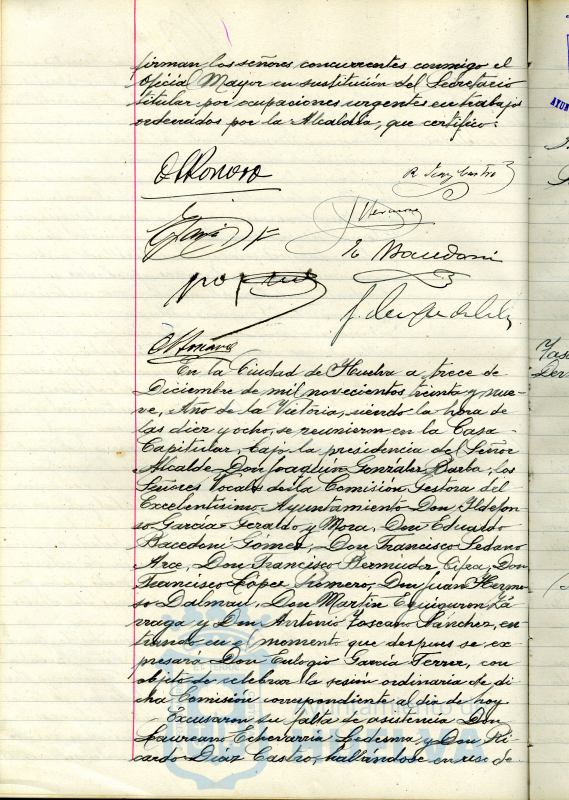 firman los señores concurrentes conmigo el
Oficial Mayor en sustitución del Secretario
titular por ocupaciones urgentes en trabajos
ordenados por la Alcaldía, que certifico:
En la Ciudad de Huelva a trece de
Diciembre de mil novecientos treinta y nue-
ve, Año de la Victoria, siendo la hora de
las diez y ocho, se reunieron en la Casa
Capitular, bajo la presidencia del Señor
Alcalde Don Joaquín González Barba, los
Señores Vocales de la Comisión Gestora del
Excelentísimo Ayuntamiento Don Ildefon-
so García Geraldo y Mora, Don Eduardo
Bacedoni Gómez, Don Francisco Sedano
Arce, Don Francisco Bermúdez Cifra, Don
Francisco López Romero, Don Juan Hermo-
so Dalmau, Don Martín Eguiguron Lá-
rraga y Don Antonio Toscano Sánchez, en
trando en el momento que despues se ex-
presará Don Eulogio García Ferrer, con
objeto de celebrar la sesión ordinaria de di
cha Comisión correspondiente al día de hoy
Excusaron su falta de asistencia Don
Laureano Echevarría Ledesma y Don Ri-
cardo Díaz Castro, hallándose en uso de
Ayuntamiento de
HUELVA